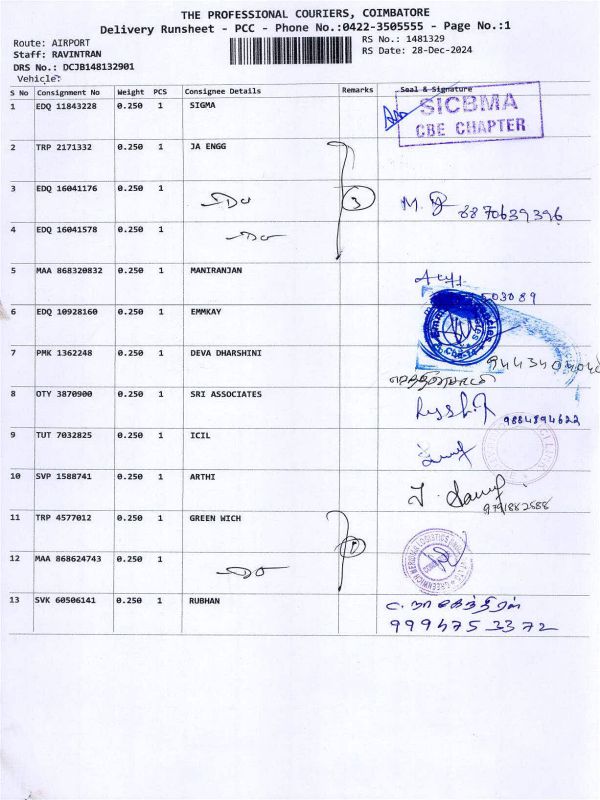 THE PROFESSIONAL COURIERS, COIMBATORE
Delivery Runsheet - PCC - Phone No.:0422-3505555 - Page No.:1
Route: AIRPORT RS No.: 1481329
Staff: RAVINTRAN RS Date: 28-Dec-2024
DRS No.: DCJB148132901
Vehicle:
S No Consignment No Weight PCS Consignee Details Remarks Seal & Signature
1 EDQ 11843228 0.250 1 SIGMA
SICBMA
CBE CHAPTER
2 TRP 2171332 0.250 1 JA ENGG
3 EDQ 16041176 0.250 1 Do 3 8870639396
4 EDQ 16041578 0.250 1 Do
5 MAA 868320832 0.250 1 MANIRANJAN
6 EDQ 10928160 0.250 1 EMMKAY
7 PMK 1362248 0.250 1 DEVA DHARSHINI
8 OTY 3870900 0.250 1 SRI ASSOCIATES 9884894622
9 TUT 7032825 0.250 1 ICIL
10 SVP 1588741 0.250 1 ARTHI
9791882588
11 TRP 4577012 0.250 1 GREEN WICH
12 MAA 868624743 0.250 1 Do
13 SVK 60506141 0.250 1 RUBHAN
9994753372